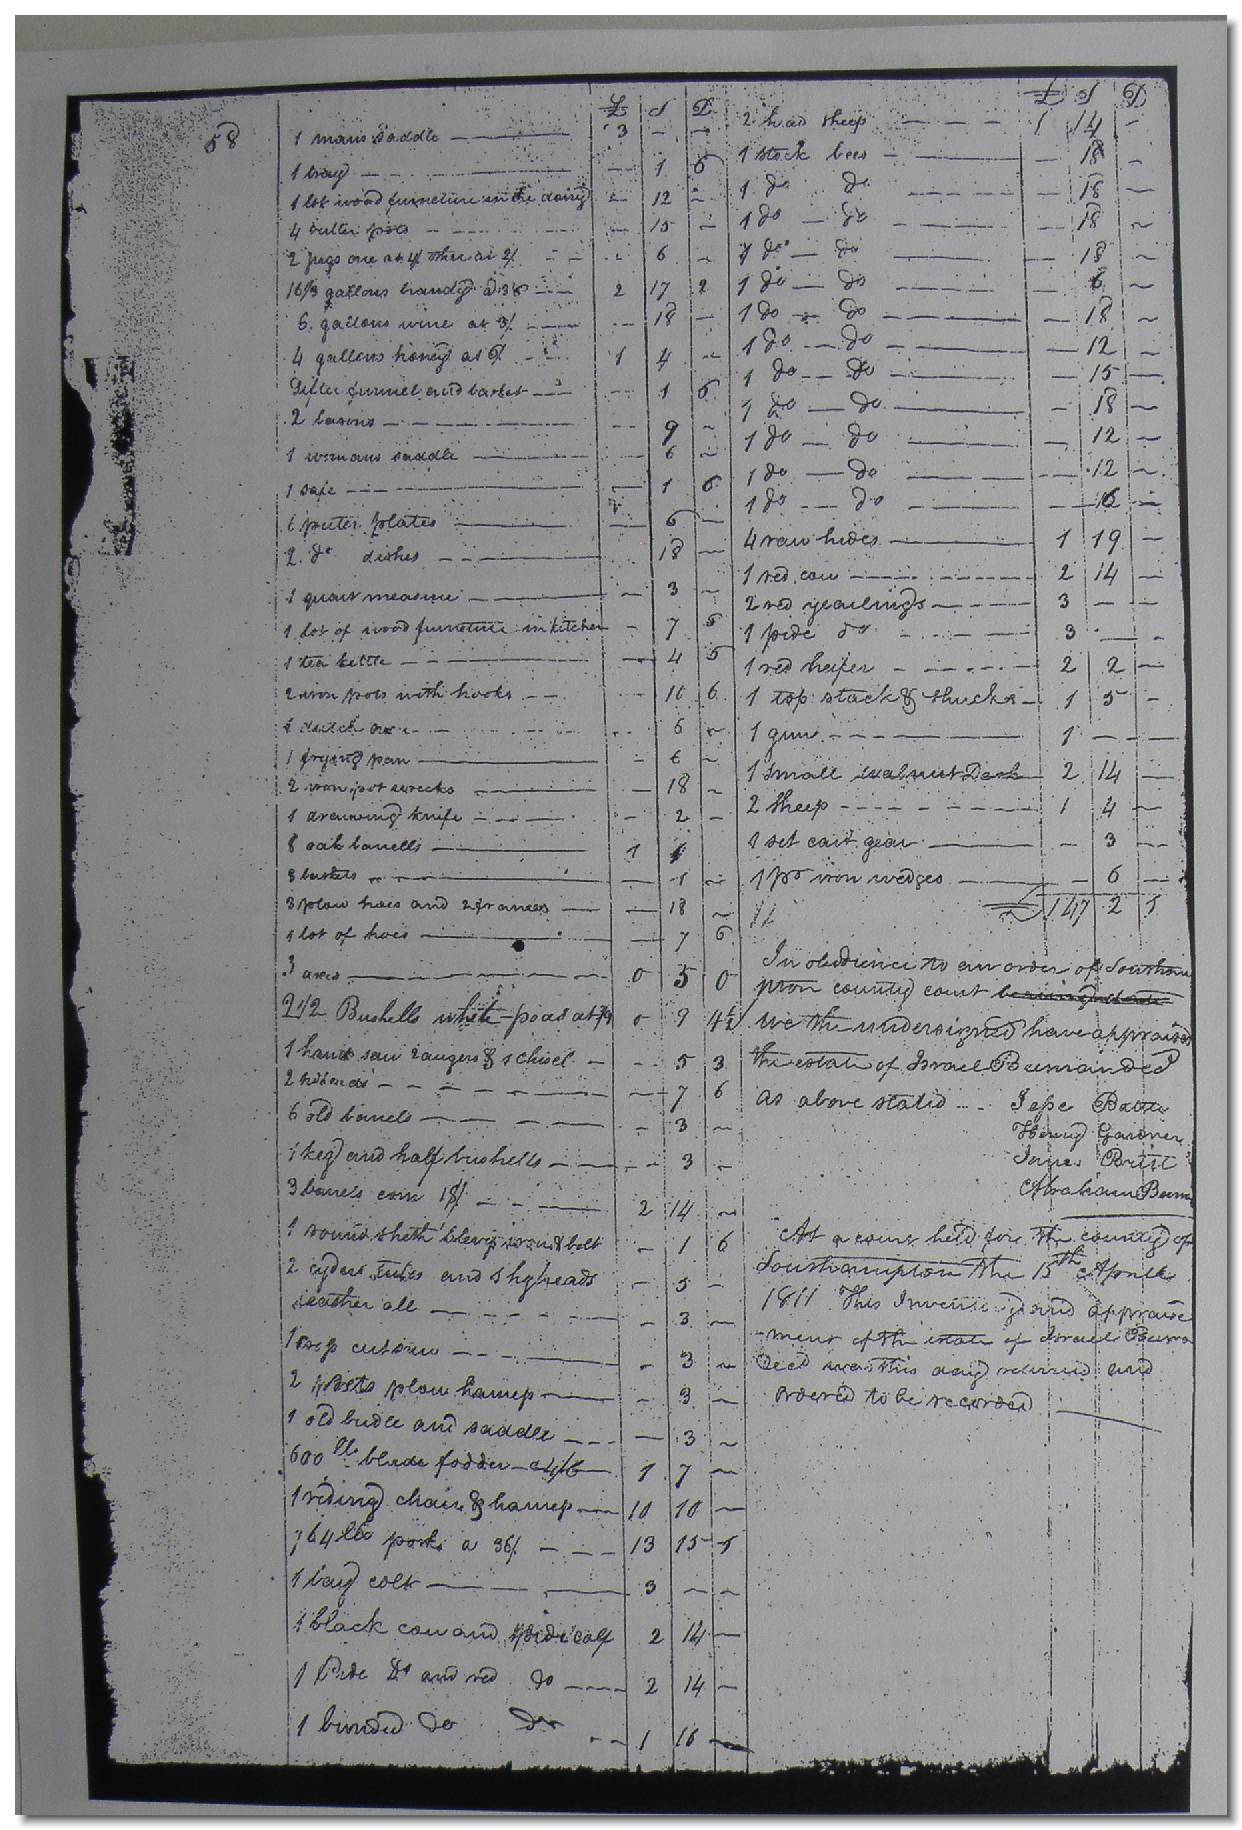 58
£ S D
1 mans saddle 3 - -
1 tray - 1 6
1 lot wood furneture in the dairy - 12 -
4 butter pots - 15 -
2 jugs one at 4/ other at 2/ - 6 -
16 1/3 gallons brandy 2 17 2
6 gallons wine at 3/ - 18 -
4 gallons honey at 6/ 1 4 -
funnel and basket - 1 6
2 basons - 9 -
1 womans saddle - 6 -
1 safe - 1 6
6 puter plates - 6 -
2 do dishes - 18 -
1 quart measure - 3 -
1 lot of wood furneture in kitchen - 7 6
1 tea kettle - 4 5
2 iron pots with hooks - 10 6
1 dutch oven - 6 -
1 frying pan - 6 -
2 iron pot wrecks - 18 -
1 drawing knife - 2 -
8 oak barrells 1 4
3 baskets - 1 -
3 plow hoes and 2 frames - 18 -
1 lot of hoes - 7 6
3 axes 0 5 0
2 1/2 Bushells white peas at 3/9 0 9 4 1/2
1 hand saw 2 augers & 1 chisel - 5 3
2 - 7 6
6 old barrels - 3 -
1 keg and half bushells - 3 -
3 barrels corn 18/ 2 14 -
1 bolt - 1 6
2 cyder and 5 hgheads - 5 -
leather all - 3 -
1 - 3 -
2 plow hamep - 3 -
1 old bridle and saddle - 3 -
600 lb blade fodder a 4/6 1 7 -
1 riding chair & harnep 10 10 -
764 lbs pork a 36/ 13 15 5
1 bay colt 3 - -
1 black cow and pide calf 2 14 -
1 Pide Do and red do 2 14 -
1 brinded do Do 1 16 -
£ S D
2 head sheep 1 14 -
1 stock bees - 18 -
1 do do - 18 -
1 do do - 18 -
1 do do - 18 -
1 do do - 6 -
1 do do - 18 -
1 do do - 12 -
1 do do - 15 -
1 do do - 18 -
1 do do - 12 -
1 do do - 12 -
1 do do - 16 -
4 raw hides 1 19 -
1 red cow 2 14 -
2 red yearlings 3 - -
1 pide do 3 - -
1 red heifer 2 2 -
1 top stack & shucks 1 5 -
1 gun 1 - -
1 small walnut Desk 2 14 -
2 sheep 1 4 -
1 set cart gear - 3 -
1 pr iron wedges - 6 -
£ 147 2 5
In obedience to an order of Southam
pton county court
we the undersigned have appraised
the estate of Israel Beeman decd
as above stated Jesse Battle
Henry Gardner
James Britt
Abraham Beem
At a court held for the county of
Southampton the 15th Aprill
1811 This Inventory and appraise
ment of the estate of Israel Beema
Decd was this day returned and
ordered to be recorded